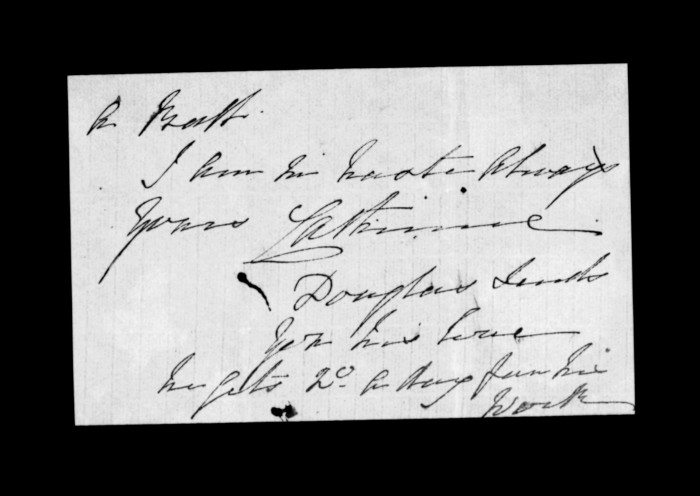 a Bath.
I am in haste Always
Yours Catherine
Douglas sends
you his love
he gets 2º a day for his
work